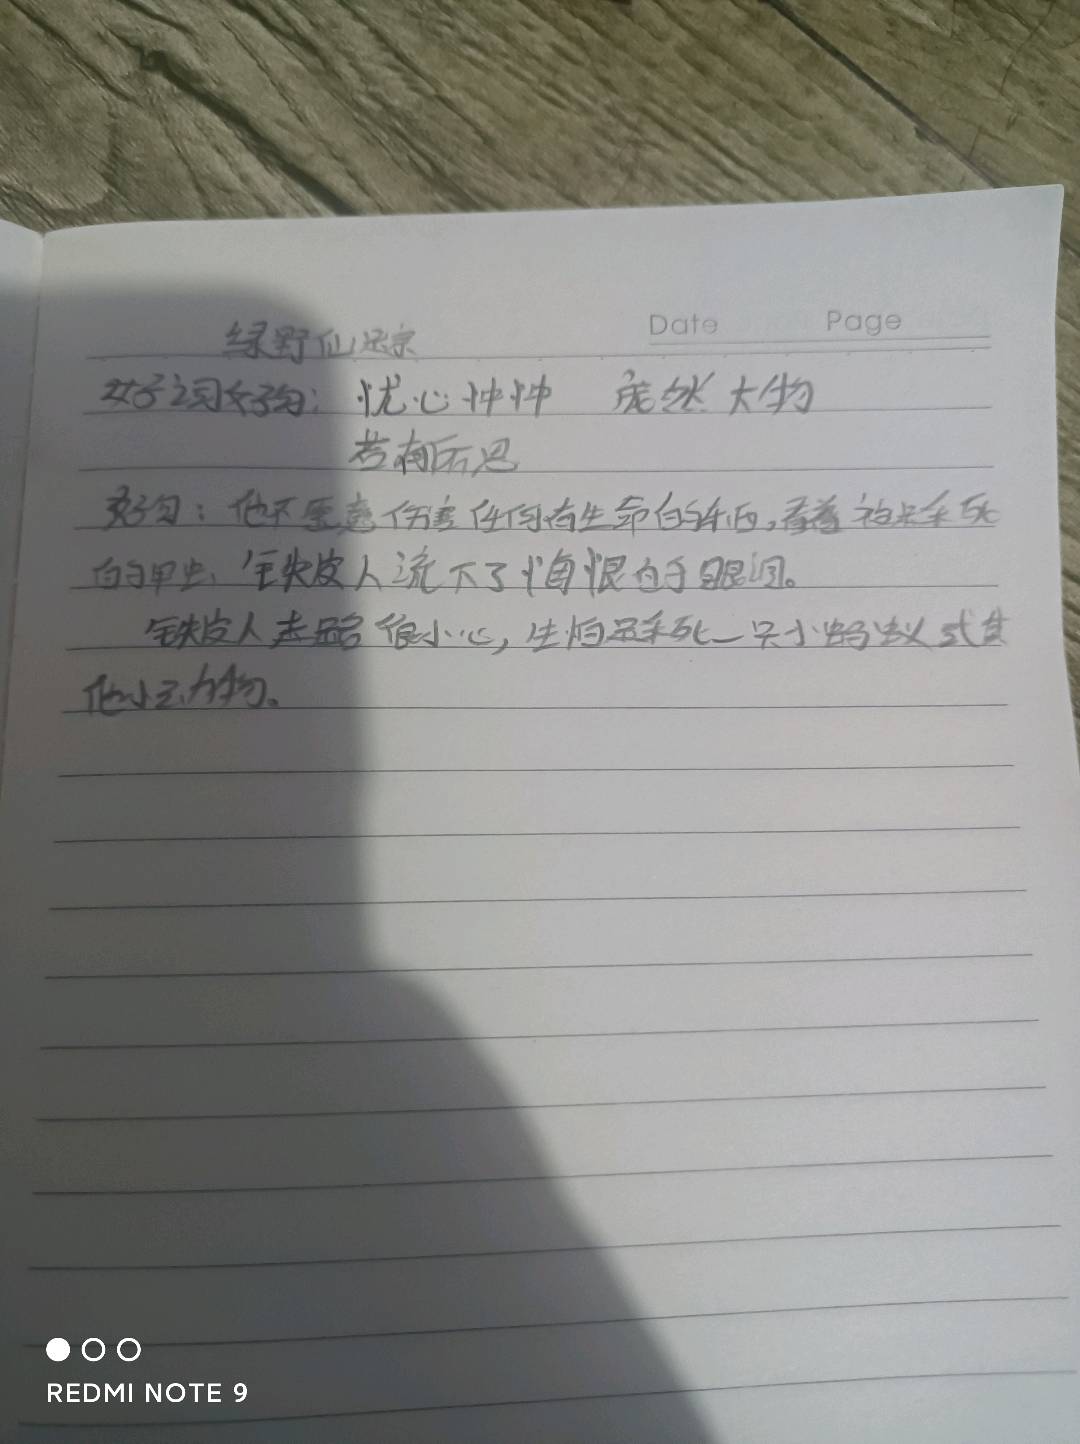 Date Page
绿野仙踪
好词好句：忧心忡忡 庞然大物
若有所思
好句：他不愿意伤害任何有生命的东西，看着被踩死
的甲虫，铁皮人流下了悔恨的眼泪。
铁皮人走路很小心，生怕踩死一只小蚂蚁或其
他小动物。
REDMI NOTE 9